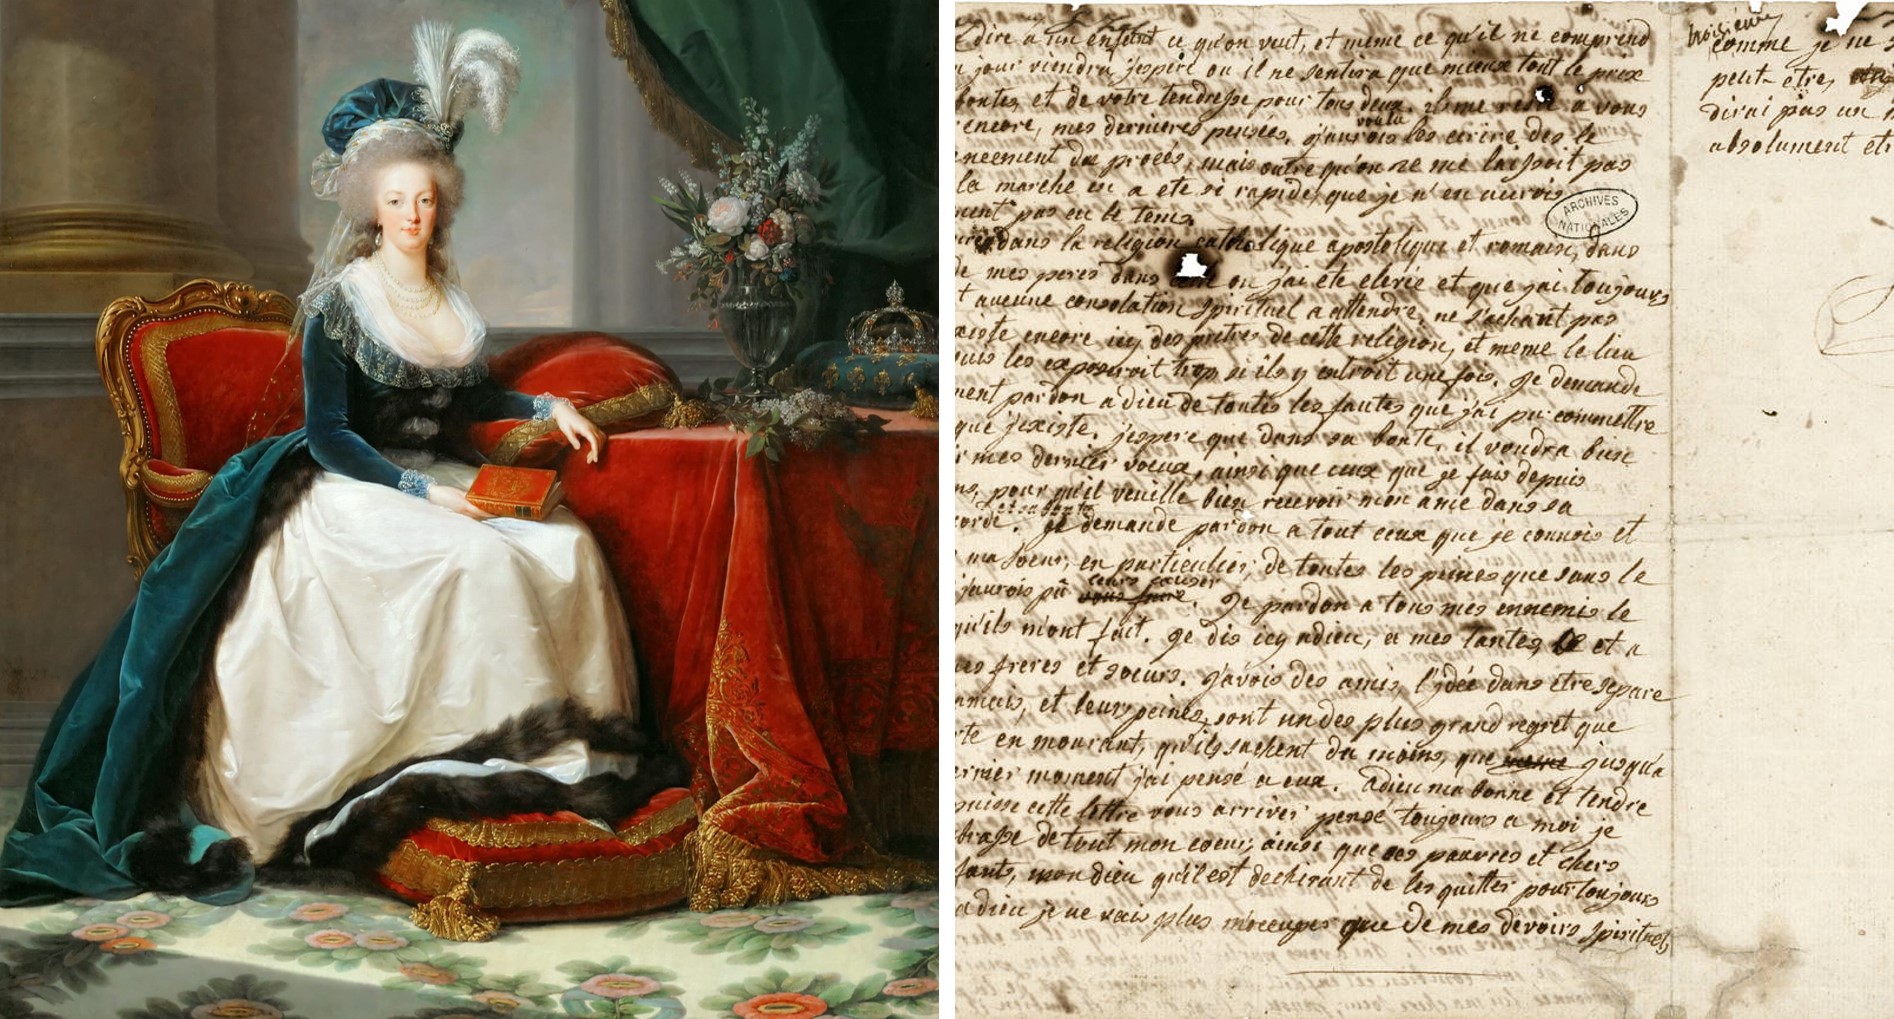 dire a un enfant ce qu'on veut, et meme ce qu'il ne comprend
jour viendra j'espere ou il ne sentira que mieux tout le prix
bontes et de votre tendresse pour tous deux. il me reste a vous
encore, mes dernieres pensées. j'aurois voulu les ecrire des le
ncement du procès, mais outre qu'on ne me laissoit pas
la marche en a ete si rapide, que je n'en aurois
ment pas eu le tems.
ARCHIVES
NATIONALES
dans la religion catholique apostolique et romaine, dans
de mes peres dans où j'ai ete elevée et que j'ai toujours
t aucune consolation spirituel a attendre, ne sachant pas
xiste encore icy des pretres de cette religion, et meme le lieu
suis les exposeroit trop si ils y entroit une fois. Je demande
ment pardon a dieu de toutes les fautes que j'ai pu commettre
que j'existe. j'espere que dans sa bonté, il voudra bien
mes dernier voeux, ainsi que ceux que je fais depuis
ms, pour qu'il veuille bien recevoir mon ame dans sa
corde. et sa bonté Je demande pardon a tout ceux que je connois et
ma soeur, en particulier, de toutes les peines que sans le
j'aurois pû vous faire leurs causer. Je pardon a tous mes ennemis le
qu'ils m'ont fait. Je dis icy adieu, a mes tantes, et a
es freres et soeurs. J'avois des amis, l'ydée dans etre separé
amais, et leurs peines, sont un des plus grand regret que
te en mourant, qu'ils sachent du moins, que jusqu'a
ernier moment j'ai pensé a eux. Adieu ma bonne et tendre
puisse cette lettre vous arriver pensé toujours a moi je
brasse de tout mon coeur, ainsi que ces pauvres et chers
fants, mon dieu qu'il est dechirant de les quitter pour toujours
adieu je ne vais plus m'occuper que de mes devoirs spirituels
comme je ne
peut-etre,
dirai pas un
absolument etr